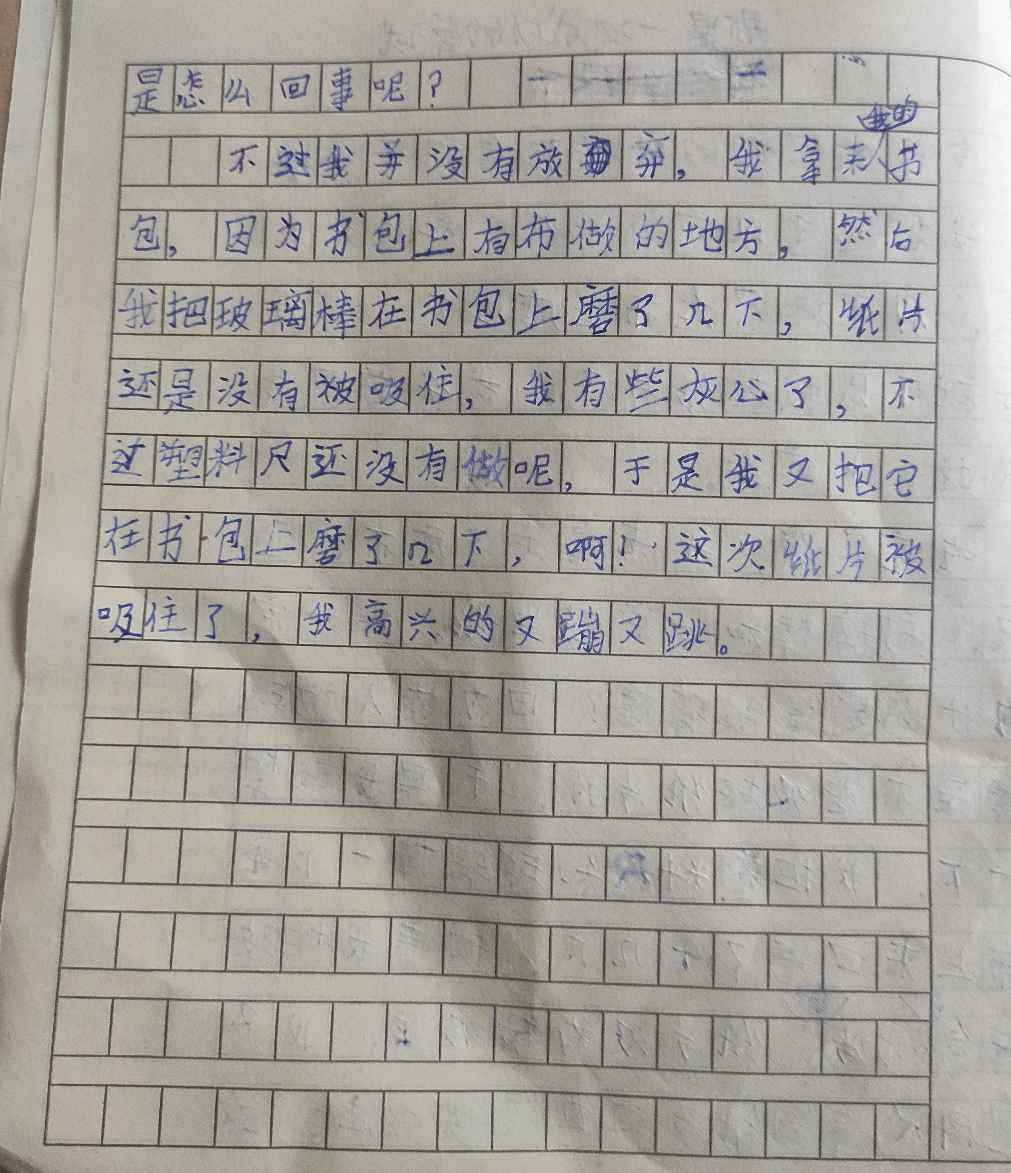 是怎么回事呢?
不过我并没有放弃,我拿来我的书
包,因为书包上有布做的地方,然后
我把玻璃棒在书包上磨了几下,纸片
还是没有被吸住,我有些灰心了,不
过塑料尺还没有做呢,于是我又把它
在书包上磨了几下,啊!这次纸片被
吸住了,我高兴的又蹦又跳。